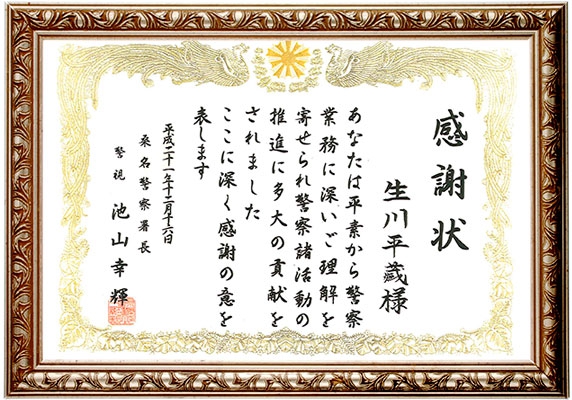 感謝状
生川平蔵様
あなたは平素から警察
業務に深いご理解を
寄せられ警察諸活動の
推進に多大の貢献を
されました
ここに深く感謝の意を
表します
平成二十一年十二月十六日
桑名警察署長
警視 池山幸輝